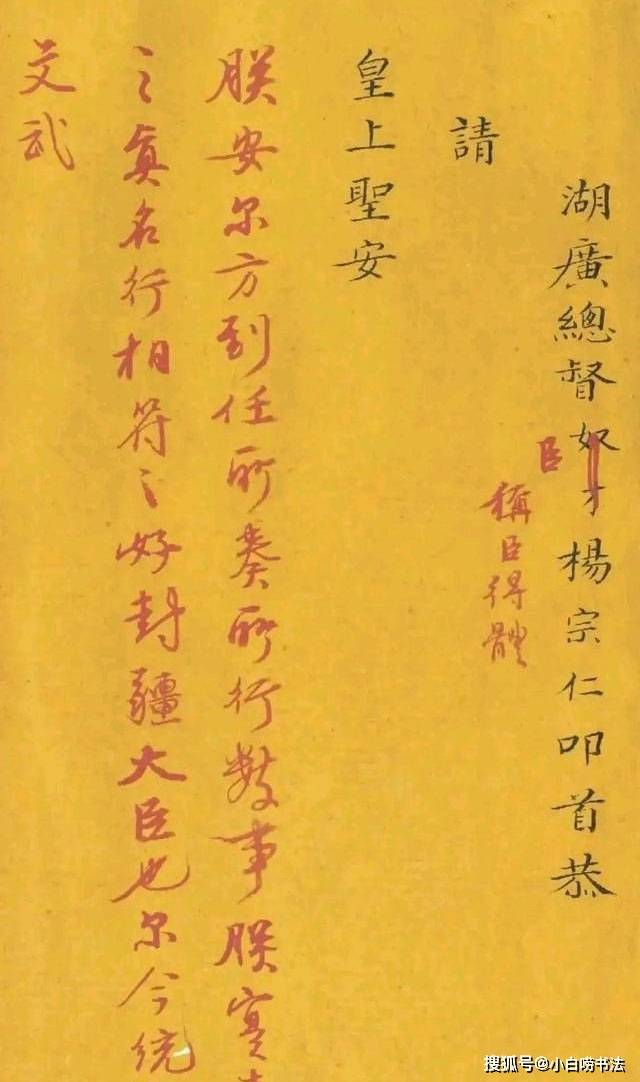 湖廣總督奴才楊宗仁叩首恭
臣
稱臣得體
請
皇上聖安
朕安尔方到任所奏所行數事朕實
之真名行相符之好封疆大臣也尔今統
文武
搜狐号@小白唠书法